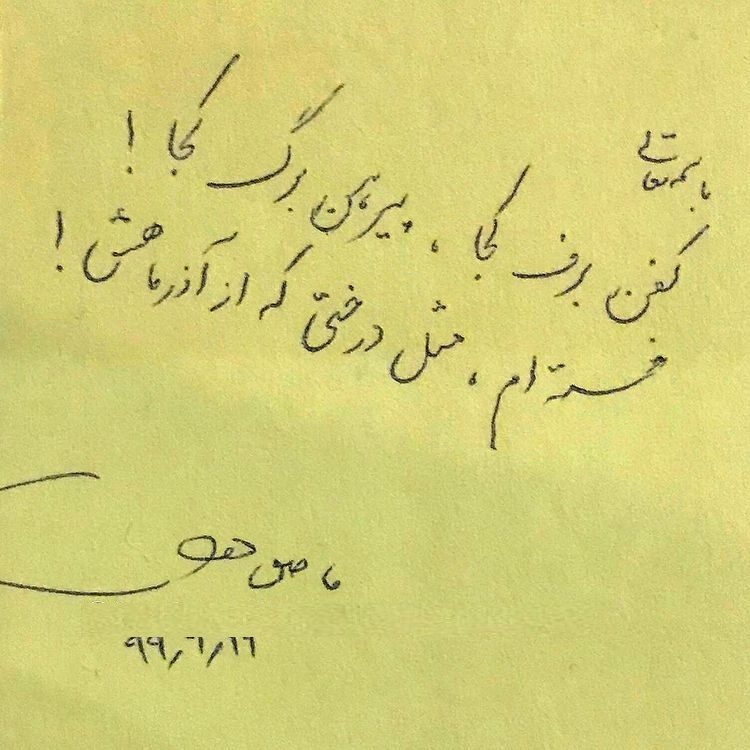 باسمه تعالی
کفن برف کجا، پیرهن برگ کجا!
خسته‌ام، مثل درختی که از آذرماهش!
۹۹٫۶٫۱۶